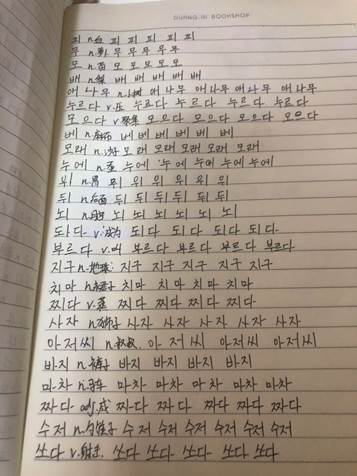 DUJING.III BOOKSHOP
피 n.血 피 피 피 피 피 피
무 n. 무 무 무 무 무
모 n.苗 모 모 모 모 모
배 n.梨 배 배 배 배 배
애나무 n.小树 애나무 애나무 애나무
누르다 v.压 누르다 누르다 누르다 누르다
모으다 v.聚集 모으다 모으다 모으다 모으다
베 n.麻布 베 베 베 베 베 베
모래 n.沙 모래 모래 모래 모래 모래
누에 n.蚕 누에 누에 누에 누에 누에
위 n.胃 위 위 위 위 위 위
뒤 n.后面 뒤 뒤 뒤 뒤 뒤 뒤
뇌 n. 뇌 뇌 뇌 뇌 뇌 뇌
되다 v.成为 되다 되다 되다 되다
부르다 v.叫 부르다 부르다 부르다 부르다
지구 n.地球 지구 지구 지구 지구 지구
치마 n.裙子 치마 치마 치마 치마
찌다 v.蒸 찌다 찌다 찌다 찌다
사자 n.狮子 사자 사자 사자 사자 사자
아저씨 n.叔叔 아저씨 아저씨 아저씨
바지 n.裤子 바지 바지 바지 바지
마차 n.马车 마차 마차 마차 마차 마차
짜다 adj.咸 짜다 짜다 짜다 짜다 짜다
수저 n.勺筷子 수저 수저 수저 수저 수저
쏘다 v.射击 쏘다 쏘다 쏘다 쏘다 쏘다